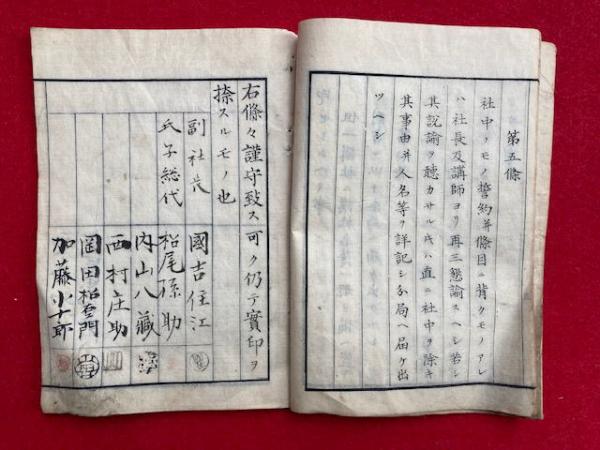 第五條
社中ノモノ誓約并條目ニ背クモノアレ
ハ社長及講師ヨリ再三懇諭スヘシ若シ
其説諭ヲ聴カサル𪜈ハ直ニ社中ヲ除キ
其事由并人名等ヲ詳記シ分局ヘ届ケ出
ツヘシ
右條々謹守致ス可ク仍テ實印ヲ
捺スルモノ也
副社長 國吉住江
氏子総代 松尾孫助
内山八藏
西村庄助
岡田松左エ門
加藤小十郎